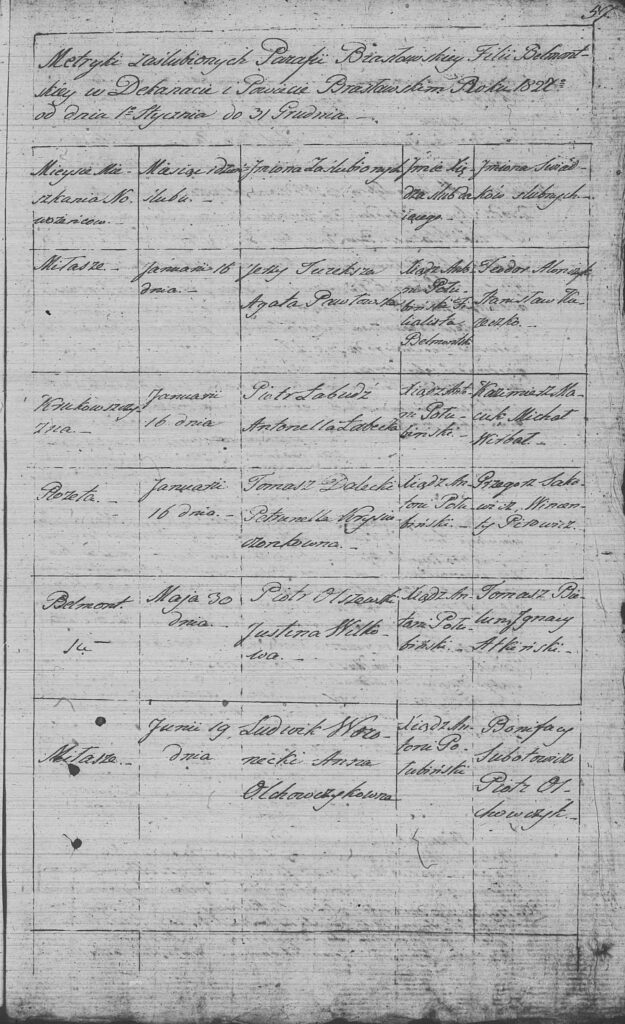 57.
Metryki zaślubionych Parafii Brasławskiey Filii Belmont-
skiey w Dekanacie i Powiecie Brasławskim Roku 1827o
od dnia 1o Stycznia do 31 Grudnia.
Mieysce Mie-
szkania No-
wożeńcow.
Miesiąc i dzień
ślubu.
Imiona Zaślubionych
Imie Xię-
dza ślub da-
iącego.
Imiona Świad-
ków ślubnych
Miłasze.
Januarii 16
dnia.
Jerzy
Agata Pawłowska
Xiądz Anto-
ni Połu-
biński Fi-
lialista
Belmontski
Teodor
Stanisław
Krukowszczy-
zna.
Januarii
16 dnia
Piotr Łabudź
Antonella Łabecka
Xiądz Anto-
ni Połu-
biński.
Kazimierz Ma-
cuk Michał
Wirbał.
Rozeta.
Januarii
16 dnia.
Tomasz Dalecki
Petrunella Krysiu-
czonkowna.
Xiądz An-
toni Połu-
biński.
Przegorz Sako-
wicz, Wincen-
ty Pitowicz.
Belmont.
Maja 30
dnia.
Piotr Olszewski
Justina Wilko-
wa.
Xiądz An-
toni Połu-
biński.
Tomasz
Ignacy
Ałkiński.
Miłasze.
Junii 19.
dnia
Ludwik Woro-
necki Anna
Olchowczykowna
Xiądz An-
toni Po-
łubiński
Bonifacy
Subotowicz
Piotr Ol-
chowczyk.